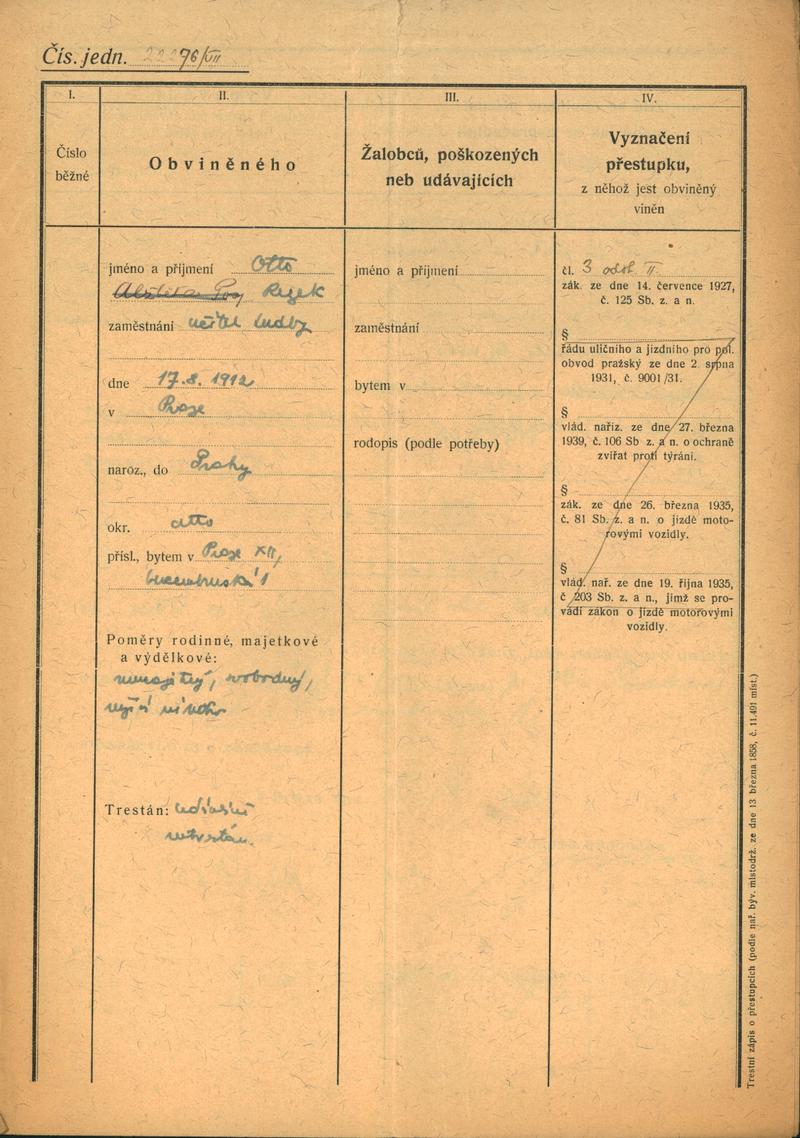 Čís. jedn. 22276/VII
I.
II.
III.
IV.
Číslo
běžné
Obviněného
Žalobců, poškozených
neb udávajících
Vyznačení
přestupku,
z něhož jest obviněný
viněn
jméno a příjmení Otto
Rezek
zaměstnání učitel hudby
dne 17.8. 1912
v Praze
naroz., do Prahy
okr. atto
přísl., bytem v Praze XII,
1
Poměry rodinné, majetkové
a výdělkové:
nemajetný, svobodný,
Trestán: údajně
netrestán.
jméno a příjmení
zaměstnání
bytem v
rodopis (podle potřeby)
čl. 3 odst. II.
zák. ze dne 14. července 1927,
č. 125 Sb. z. a n.
§
řádu uličního a jízdního pro pol.
obvod pražský ze dne 2. srpna
1931, č. 9001/31.
§
vlád. nařiz. ze dne 27. března
1939, č. 106 Sb z. a n. o ochraně
zvířat proti týrání.
§
zák. ze dne 26. března 1935,
č. 81 Sb. z. a n. o jízdě moto-
rovými vozidly.
§
vlád. nař. ze dne 19. října 1935,
č 203 Sb. z. a n., jímž se pro-
vádí zákon o jízdě motorovými
vozidly.
Trestní zápis o přestupcích (podle nař. býv. místodrž. ze dne 13. března 1858, č. 11.491 míst.)